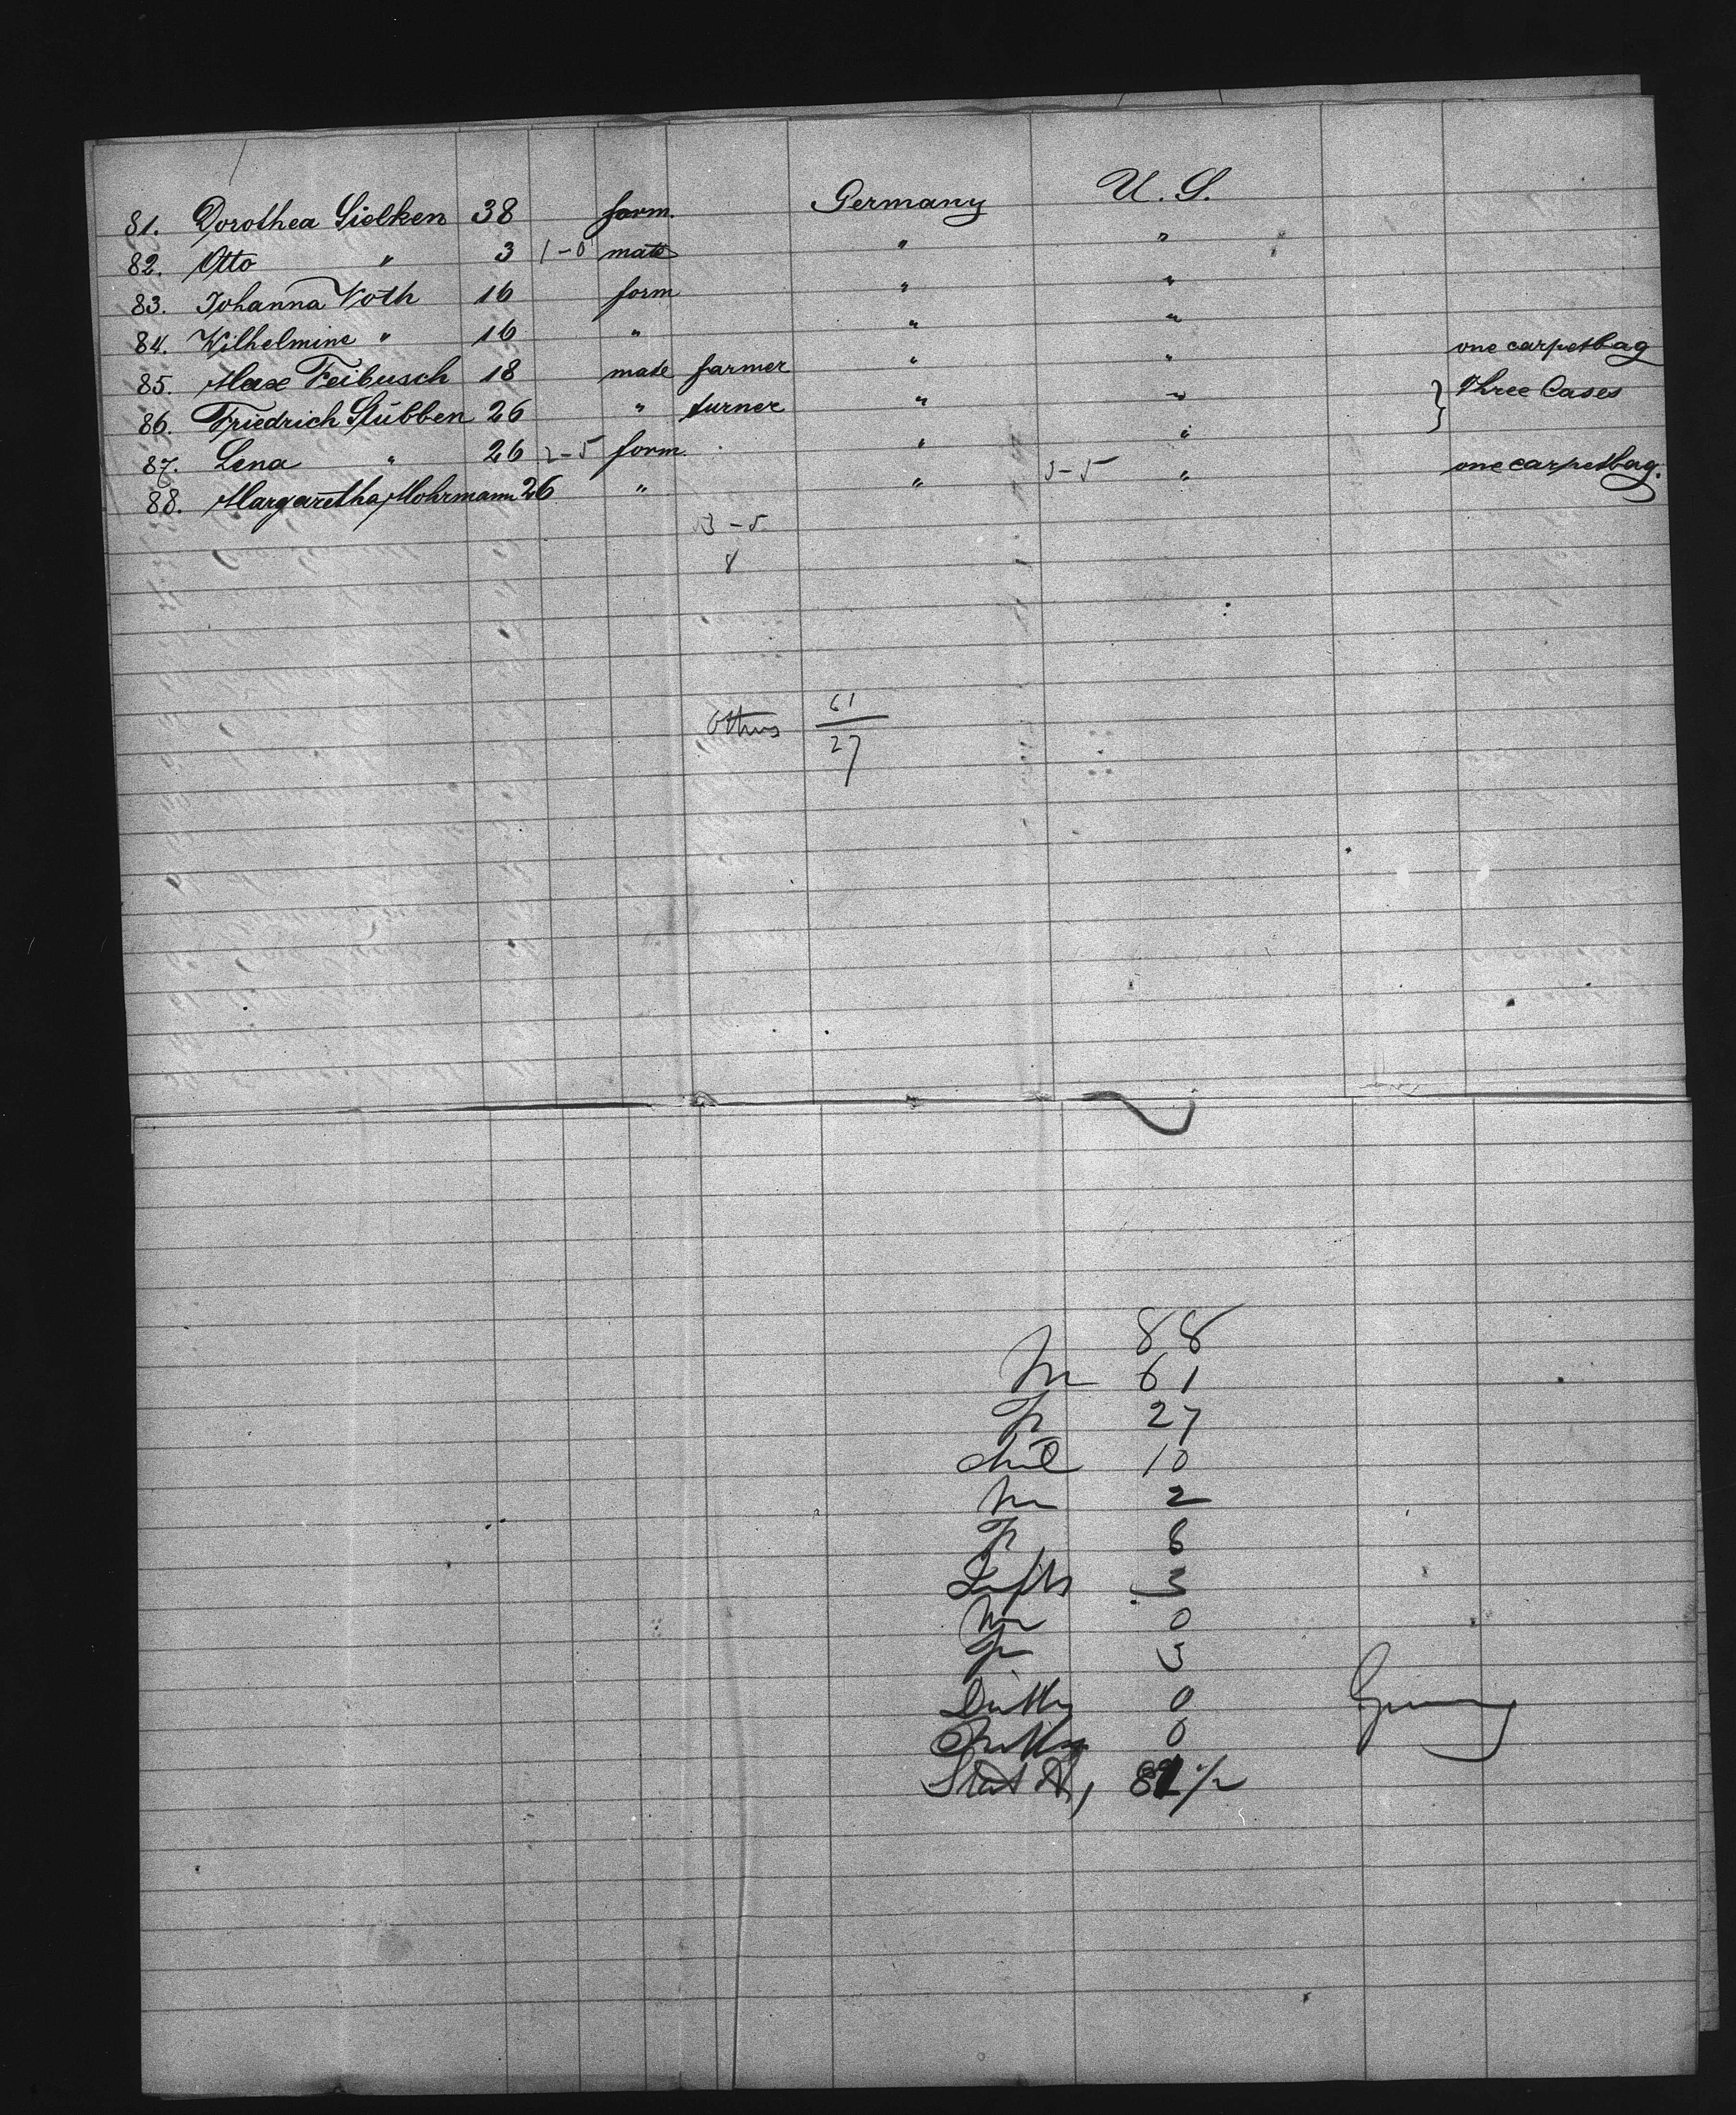 81. Dorothea Sielken 38 fem. Germany U. S.
82. Otto " 3 1-0 male " "
83. Johanna Voth 16 fem " "
84. Wilhelmine " 16 " " "
85. Max Feibusch 18 male farmer " " one carpetbag
86. Friedrich Stübben 26 " turner " " } Three Cases
87. Lena " 26 2-5 fem. " "
88. Margaretha Mohrmann 26 " " 3-5 " one carpetbag.
3-5
8
Others 61
27
88
m 61
F 27
chil 10
m 2
F 8
Infts 3
m 0
F 3
Deaths 0
Births 0